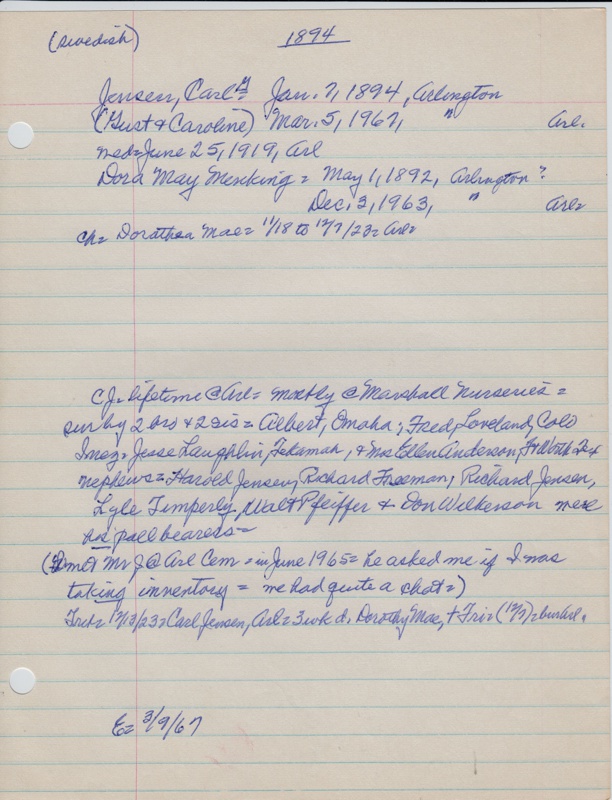 (Swedish) 1894
Jensen, Carl G = Jan. 7, 1894, Arlington
(Gust & Caroline) Mar. 5, 1967, " Arl.
wed = June 25, 1919, Arl
Dora May Menking = May 1, 1892, Arlington ?
Dec. 3, 1963, " Arl =
ch = Dorothea Mae = 11/18 to 12/7/23 = Arl =
C.J. = lifetime @ Arl = mostly @ Marshall Nurseries =
sur by 2 bro & 2 sis = Albert, Omaha; Fred, Loveland, Colo
Inez = Jesse Laughlin, Tekamah, & Mrs Ellen Anderson, Ft Worth Tex
nephews = Harold Jensen, Richard Freeman, Richard Jensen,
Lyle Timperly, Walt Pfeiffer & Don Wilkerson were
his pall bearers =
(I met Mr J @ Arl Cem = in June 1965 = he asked me if I was
taking inventory = we had quite a chat =)
Trib = 12/13/23 = Carl Jensen, Arl = 3 wk d. Dorothy Mae, + Fri = (12/7) = bur Arl.
E = 3/9/67